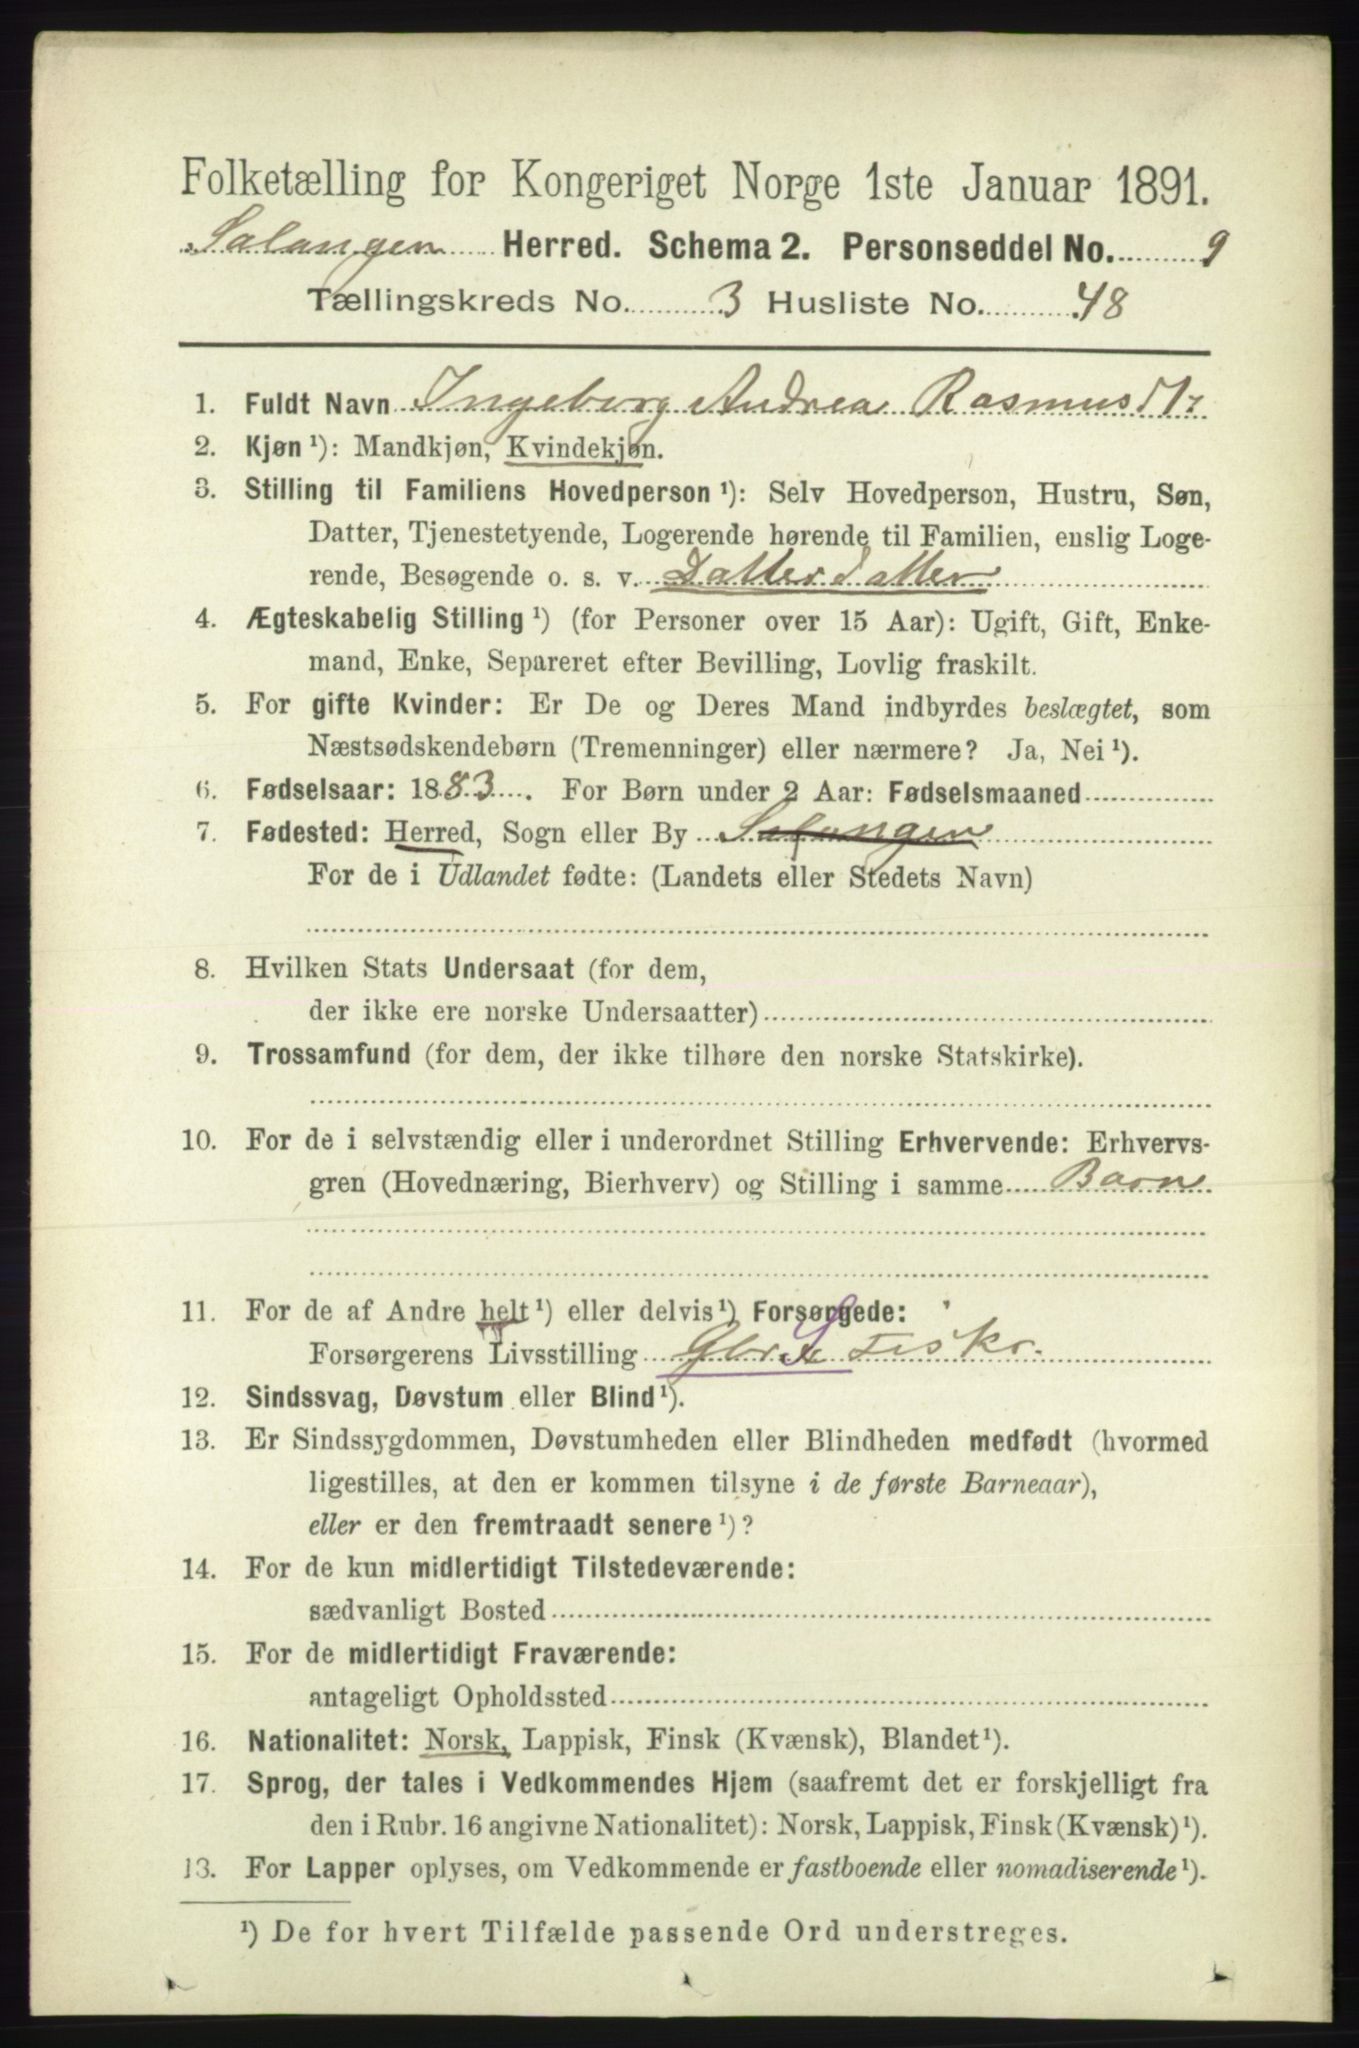 Folketælling for Kongeriget Norge 1ste Januar 1891.
Salangen Herred. Schema 2. Personseddel No. 9
Tællingskreds No. 3 Husliste No. 48
1. Fuldt Navn Ingeborg Andrea Rasmusdtr
2. Kjøn ¹): Mandkjøn, Kvindekjøn.
3. Stilling til Familiens Hovedperson ¹): Selv Hovedperson, Hustru, Søn,
Datter, Tjenestetyende, Logerende hørende til Familien, enslig Loge-
rende, Besøgende o. s. v. Datterdatter
4. Ægteskabelig Stilling ¹) (for Personer over 15 Aar): Ugift, Gift, Enke-
mand, Enke, Separeret efter Bevilling, Lovlig fraskilt.
5. For gifte Kvinder: Er De og Deres Mand indbyrdes beslægtet, som
Næstsødskendebørn (Tremenninger) eller nærmere? Ja, Nei ¹).
6. Fødselsaar: 1883. For Børn under 2 Aar: Fødselsmaaned
7. Fødested: Herred, Sogn eller By Salangen
For de i Udlandet fødte: (Landets eller Stedets Navn)
8. Hvilken Stats Undersaat (for dem,
der ikke ere norske Undersaatter)
9. Trossamfund (for dem, der ikke tilhøre den norske Statskirke).
10. For de i selvstændig eller i underordnet Stilling Erhvervende: Erhvervs-
gren (Hovednæring, Bierhverv) og Stilling i samme Barn
11. For de af Andre helt ¹) eller delvis ¹) Forsørgede:
Forsørgerens Livsstilling Gbr. Fiskr.
12. Sindssvag, Døvstum eller Blind ¹).
13. Er Sindssygdommen, Døvstumheden eller Blindheden medfødt (hvormed
ligestilles, at den er kommen tilsyne i de første Barneaar),
eller er den fremtraadt senere ¹)?
14. For de kun midlertidigt Tilstedeværende:
sædvanligt Bosted
15. For de midlertidigt Fraværende:
antageligt Opholdssted
16. Nationalitet: Norsk, Lappisk, Finsk (Kvænsk), Blandet ¹).
17. Sprog, der tales i Vedkommendes Hjem (saafremt det er forskjelligt fra
den i Rubr. 16 angivne Nationalitet): Norsk, Lappisk, Finsk (Kvænsk) ¹).
13. For Lapper oplyses, om Vedkommende er fastboende eller nomadiserende ¹).
¹) De for hvert Tilfælde passende Ord understreges.